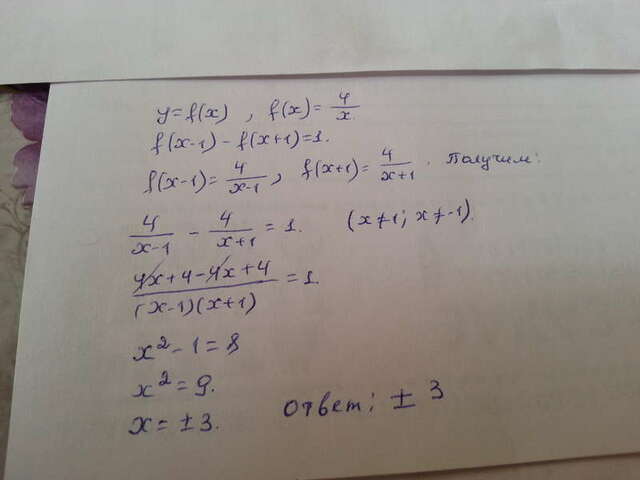 y=f(x) , f(x)= 4/x.
f(x-1)-f(x+1)=1.
f(x-1)= 4/(x-1), f(x+1)= 4/(x+1). Получим:
4/(x-1) - 4/(x+1) = 1. (x≠1; x≠-1).
(4x+4-4x+4)/((x-1)(x+1)) = 1.
x²-1=8
x²=9.
x=±3. Ответ: ±3